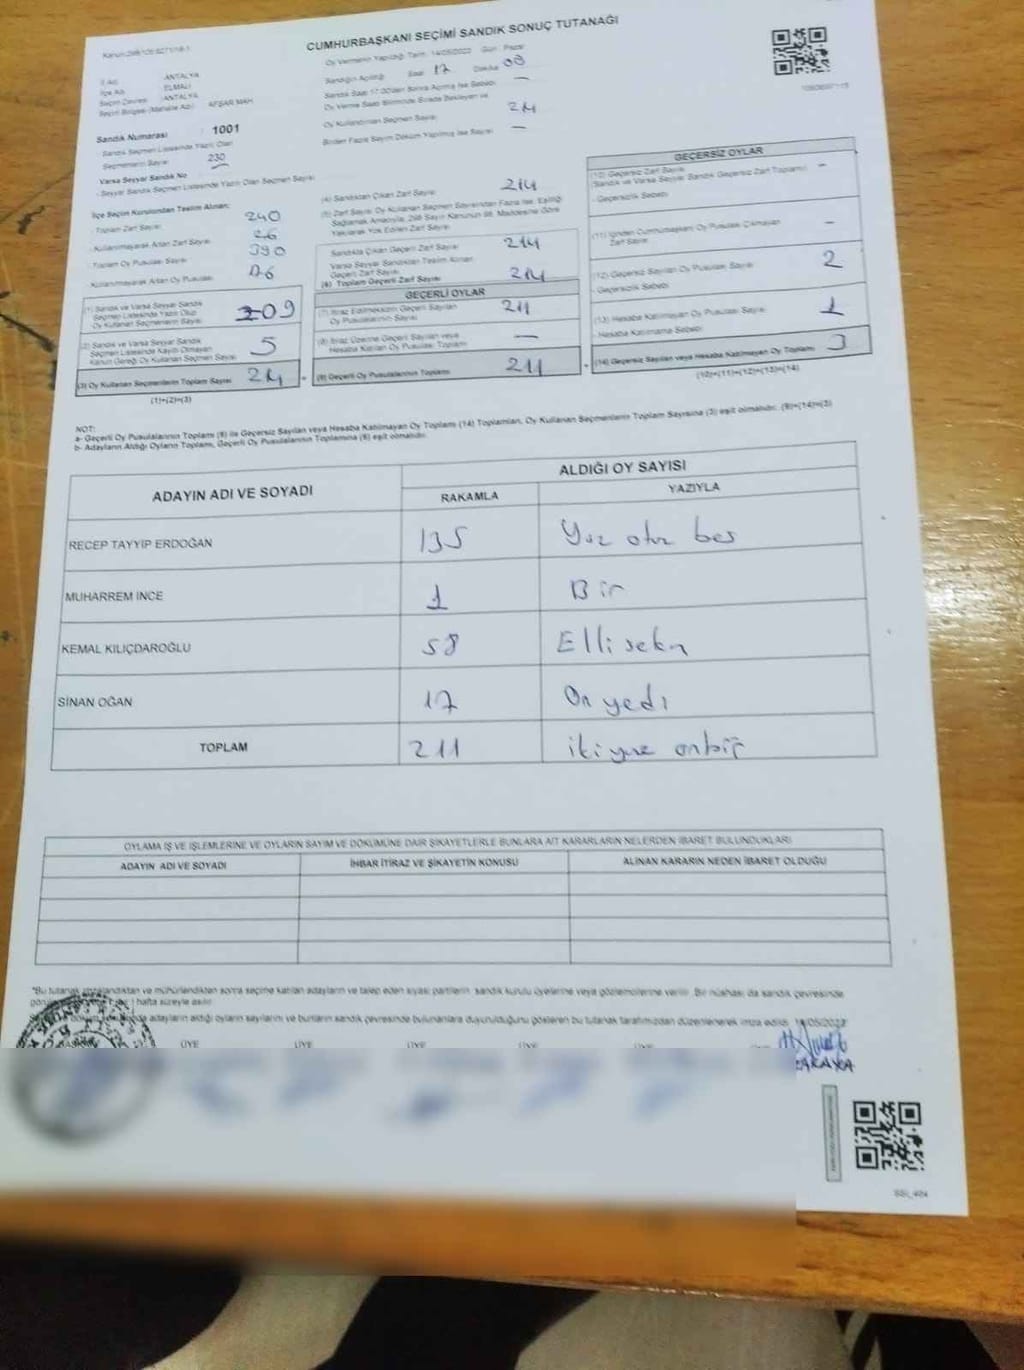 CUMHURBAŞKANI SEÇİMİ SANDIK SONUÇ TUTANAĞI
Oy Vermenin Yapıldığı Tarih: 14/05/2023 Gün: Pazar
İl Adı ANTALYA
İlçe Adı ELMALI
Seçim Çevresi :ANTALYA
Seçim Bölgesi (Mahalle Adı) AFŞAR MAH.
Sandık Numarası : 1001
Sandık Seçmen Listesinde Yazılı Olan
Seçmenlerin Sayısı 230
Varsa Seyyar Sandık No
- Seyyar Sandık Seçmen Listesinde Yazılı Olan Seçmen Sayısı
Sandığın Açıldığı Saat 17 Dakika 00
Sandık Saat 17.00'den Sonra Açılmış İse Sebebi: —
Oy Verme Saati Bitiminde Sırada Bekleyen ve
Oy Kullandırılan Seçmen Sayısı
Birden Fazla Sayım Döküm Yapılmış İse Sayısı —
İlçe Seçim Kurulundan Teslim Alınan:
Toplam Zarf Sayısı 240
Kullanılmayarak Artan Zarf Sayısı 26
Toplam Oy Pusulası Sayısı
Kullanılmayarak Artan Oy Pusulası
(1) Sandık ve Varsa Seyyar Sandık
Seçmen Listesinde Yazılı Olup
Oy Kullanan Seçmenlerin Sayısı 209
(2) Sandık ve Varsa Seyyar Sandık
Seçmen Listesinde Kayıtlı Olmayan
Kanun Gereği Oy Kullanan Seçmen Sayısı 5
(3) Oy Kullanan Seçmenlerin Toplam Sayısı 214
(1)+(2)=(3)
(4) Sandıktan Çıkan Zarf Sayısı 214
(5) Zarf Sayısı Oy Kullanan Seçmen Sayısından Fazla İse, Eşitliği
Sağlamak Amacıyla, 298 Sayılı Kanunun 98. Maddesine Göre
Yakılarak Yok Edilen Zarf Sayısı
Sandıkta Çıkan Geçerli Zarf Sayısı 214
Varsa Seyyar Sandıktan Teslim Alınan
Geçerli Zarf Sayısı
(6) Toplam Geçerli Zarf Sayısı 214
GEÇERLİ OYLAR
(7) İtiraz Edilmeksizin Geçerli Sayılan
Oy Pusulalarının Sayısı 211
(8) İtiraz Üzerine Geçerli Sayılan veya
Hesaba Katılan Oy Pusulası Toplamı —
(9) Geçerli Oy Pusulalarının Toplamı 211
GEÇERSİZ OYLAR
(10) Geçersiz Zarf Sayısı —
(Sandık ve Varsa Seyyar Sandık Geçersiz Zarf Toplamı)
- Geçersizlik Sebebi
(11) İçinden Cumhurbaşkanı Oy Pusulası Çıkmayan —
Zarf Sayısı
(12) Geçersiz Sayılan Oy Pusulası Sayısı 2
- Geçersizlik Sebebi
(13) Hesaba Katılmayan Oy Pusulası Sayısı 1
- Hesaba Katılmama Sebebi
(14) Geçersiz Sayılan veya Hesaba Katılmayan Oy Toplamı 3
(10)+(11)+(12)+(13)=(14)
NOT:
a- Geçerli Oy Pusulalarının Toplamı (9) ile Geçersiz Sayılan veya Hesaba Katılmayan Oy Toplamı (14) Toplamları, Oy Kullanan Seçmenlerin Toplam Sayısına (3) eşit olmalıdır. (9)+(14)=(3)
b- Adayların Aldığı Oyların Toplamı, Geçerli Oy Pusulalarının Toplamına (9) eşit olmalıdır.
ADAYIN ADI VE SOYADI ALDIĞI OY SAYISI
RAKAMLA YAZIYLA
RECEP TAYYİP ERDOĞAN 135 Yüz otuz beş
MUHARREM İNCE 1 Bir
KEMAL KILIÇDAROĞLU 58 Elli sekiz
SİNAN OĞAN 17 On yedi
TOPLAM 211 iki yüz onbir
OYLAMA İŞ VE İŞLEMLERİNE VE OYLARIN SAYIM VE DÖKÜMÜNE DAİR ŞİKAYETLERLE BUNLARA AİT KARARLARIN NELERDEN İBARET BULUNDUKLARI
ADAYIN ADI VE SOYADI İHBAR İTİRAZ VE ŞİKAYETİN KONUSU ALINAN KARARIN NEDEN İBARET OLDUĞU
*Bu tutanak imzalandıktan ve mühürlendikten sonra seçime katılan adayların ve talep eden siyasi partilerin sandık kurulu üyelerine veya gözlemcilerine verilir. Bir nüshası da sandık çevresinde
1 hafta süreyle asılır.
adayların aldığı oyların sayılarını ve bunların sandık çevresinde bulunanlara duyurulduğunu gösteren bu tutanak tarafımızdan düzenlenerek imza edildi.
ÜYE ÜYE ÜYE ÜYE ÜYE